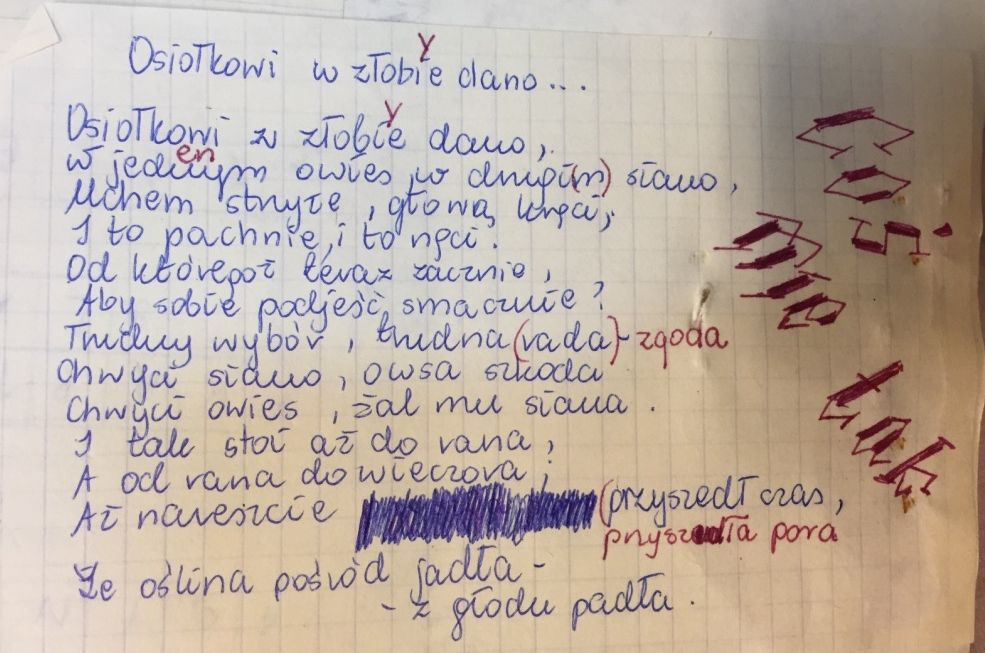 Y
Osiołkowi w złobie dano...
Y
Osiołkowi w złobie dano,
en
W jednym owies, w drugi(m) siano,
Uchem strzyże, głową kręci,
I to pachnie, i to nęci.
Od któregoż teraz zacznie,
Aby sobie podjeść smacznie?
Trudny wybór, trudna (rada) - zgoda
Chwyci siano, owsa szkoda
Chwyci owies, żal mu siana.
I tak stoi aż do rana,
A od rana do wieczora;
Aż nareszcie (przyszedł czas,
przyszła pora
Że oślina pośród jadła -
- z głodu padła.
5.
tak